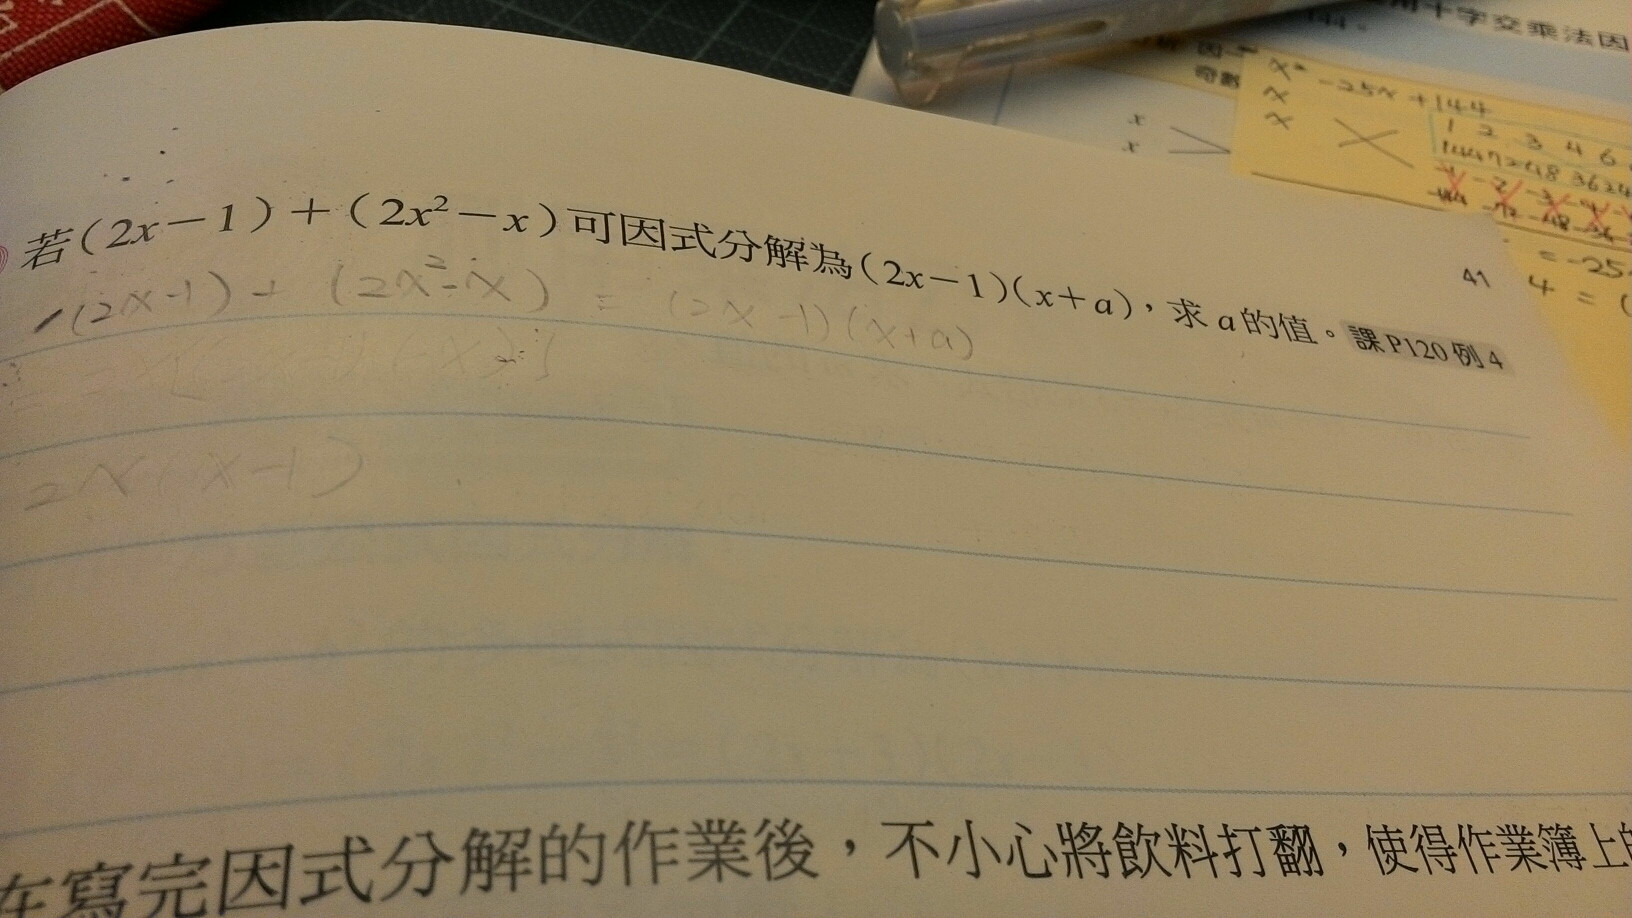 用十字交乘法因
x² -25x +144
x
x
1 2 3 4 6
144 72 48 36 24
x
x
= -25
4 = (
41
若(2x-1)+(2x²-x)可因式分解為(2x-1)(x+a),求a的值。課P120例4
(2x-1)+(2x²-x) = (2x-1)(x+a)
2x(x-1)
在寫完因式分解的作業後,不小心將飲料打翻,使得作業簿上的